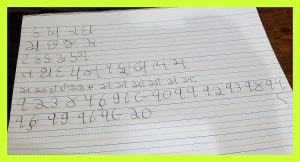 ક ખ ગ ઘ
ચ છ જ ઝ
ટ ઠ ડ ઢ ણ
ત થ દ ધ ન પ ફ બ ભ મ
અ આ ઇ ઈ ઉ ઊ એ ઐ ઓ ઔ અં અઃ
૧ ૨ ૩ ૪ ૫ ૬ ૭ ૮ ૯ ૧૦ ૧૧ ૧૨ ૧૩ ૧૪ ૧૫
૧૬ ૧૭ ૧૮ ૧૯ ૨૦